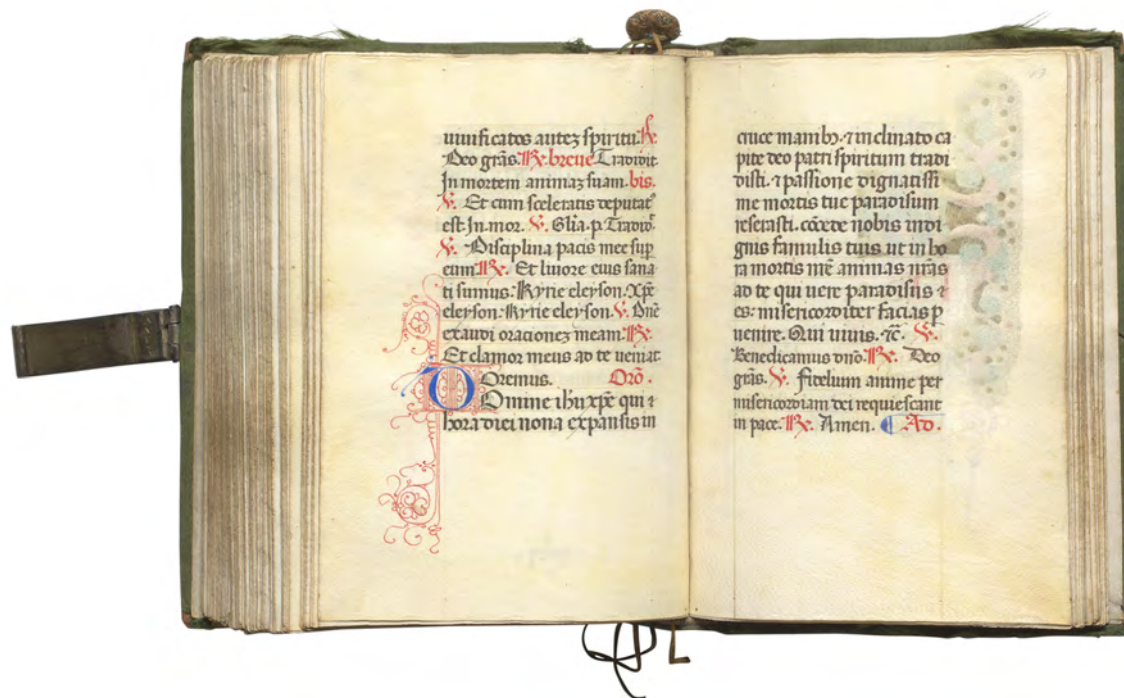 uiuificatos autez spiritu. ℟.
Deo grãs. ℟. breue Tradidit
In mortem animaz suam. bis.
℣. Et cum sceleratis deputatꝰ
est. In mor. ℣. Glia. p. Tradid᷑.
℣. Disciplina pacis mee sup
eum ℟. Et liuore eius sana
ti sumus. Kyrie eleyson. Xpẽ
eleyson. Kyrie eleyson. ℣. Dnẽ
exaudi oracionez meam. ℟.
Et clamor meus ad te ueniat.
Oremus. Orõ.
Domine ihu xpẽ qui ⁊
hora diei nona expansis in
cruce manibꝫ. ⁊ inclinato ca
pite deo patri spiritum tradi
disti. ⁊ passione dignatissi
me mortis tue paradisum
reserasti. cõcede nobis indi
gnis famulis tuis ut in ho
ra mortis nrẽ animas nrãs
ad te qui uere paradisus ⁊
es: misericorditer facias p
uenire. Qui uiuis. ⁊c̃. ℣.
Benedicamus dnõ. ℟. Deo
grãs. ℣. Fidelium anime per
misericordiam dei requiescant
in pace. ℟. Amen. ¶ Ad.